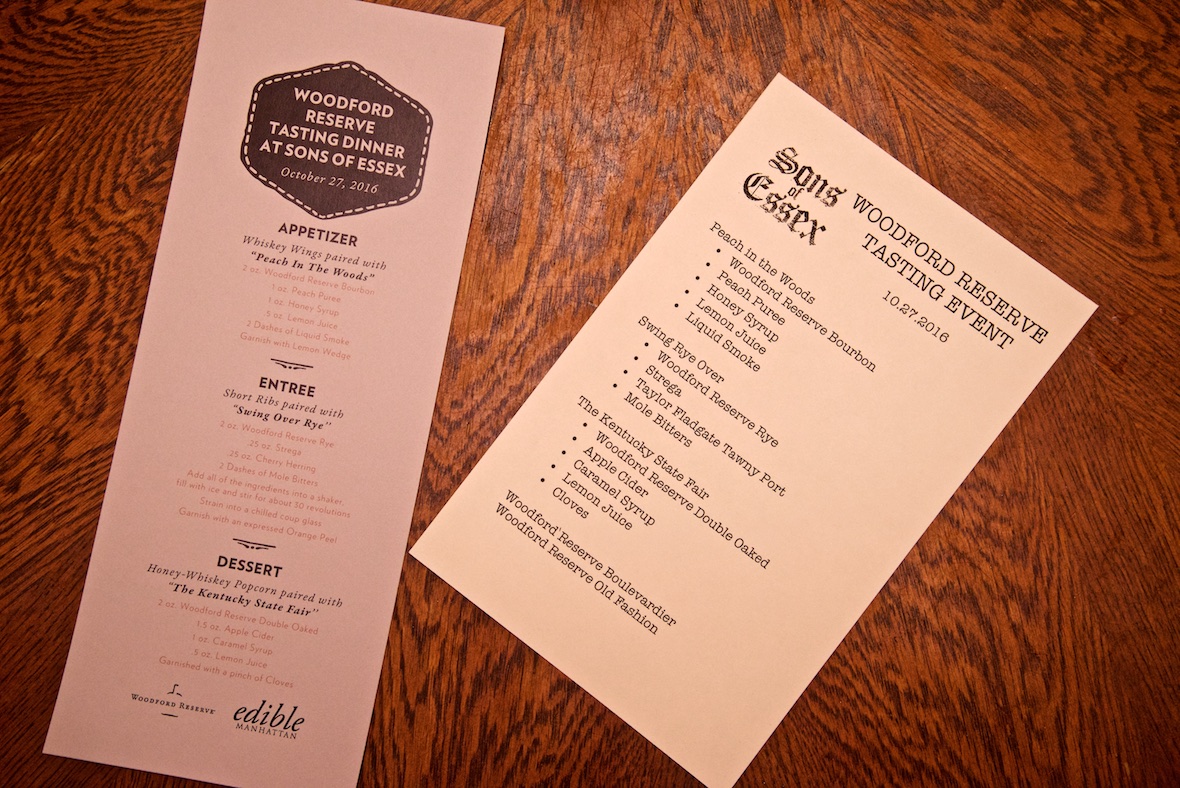 WOODFORD
RESERVE
TASTING DINNER
AT SONS OF ESSEX
October 27, 2016
APPETIZER
Whiskey Wings paired with
"Peach In The Woods"
2 oz. Woodford Reserve Bourbon
1 oz. Peach Puree
1 oz. Honey Syrup
5 oz. Lemon Juice
2 Dashes of Liquid Smoke
Garnish with Lemon Wedge
ENTREE
Short Ribs paired with
"Swing Over Rye"
2 oz. Woodford Reserve Rye
.25 oz. Strega
.25 oz. Cherry Herring
2 Dashes of Mole Bitters
Add all of the ingredients into a shaker,
fill with ice and stir for about 30 revolutions
Strain into a chilled coup glass
Garnish with an expressed Orange Peel
DESSERT
Honey-Whiskey Popcorn paired with
"The Kentucky State Fair"
2 oz. Woodford Reserve Double Oaked
1.5 oz. Apple Cider
1 oz. Caramel Syrup
5 oz. Lemon Juice
Garnished with a pinch of Cloves
WOODFORD RESERVE
edible
MANHATTAN
Sons
of
Essex
WOODFORD RESERVE
TASTING EVENT
10.27.2016
Peach in the Woods
• Woodford Reserve Bourbon
• Peach Puree
• Honey Syrup
• Lemon Juice
• Liquid Smoke
Swing Rye Over
• Woodford Reserve Rye
• Strega
• Taylor Fladgate Tawny Port
• Mole Bitters
The Kentucky State Fair
• Woodford Reserve Double Oaked
• Apple Cider
• Caramel Syrup
• Lemon Juice
• Cloves
Woodford Reserve Boulevardier
Woodford Reserve Old Fashion